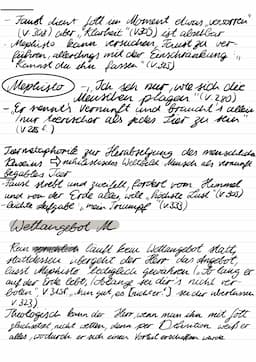 - Faust dient Gott im Moment etwas „verworren"
(V 308) aber „Klarheit" (V 309) ist absehbar
- Mephisto kann versuchen, Faust zu ver-
führen, allerdings mit der Einschränkung „
Kannst du ihn fassen" (V 325)
Mephisto - „Ich seh nur, wie sich die
Menschen plagen" (V 280)
- „Er nennt's Vernunft und braucht's allein
nur tierischer als jedes Tier zu sein"
(V 285 f.)
Tiermetaphorik zur Herabsetzung des menschlichen
Wesens → Mensch als vernunft
begabtes Tier
Faust strebt und zweifelt, fordert vom Himmel
und von der Erde alles, will „höchste Lust" (V 305)
- leichte Aufgabe, „mein Triumpf" (V 333)
Wettangebot M
Kein läuft kein Wettangebot statt,
stattdessen übergeht der Herr das Angebot,
lässt Mephisto lediglich gewähren („So lang er
auf der Erde lebt, / So lange sei dir's nicht ver-
boten", V 315f, „Nun gut, es sei dir überlassen"
V 323)
Theologisch kann der Herr, wenn man ihn mit Gott
gleichsetzt, nicht wetten, denn per Definition weiß er
alles, wodurch er sich einen Vorteil verschaffen würde